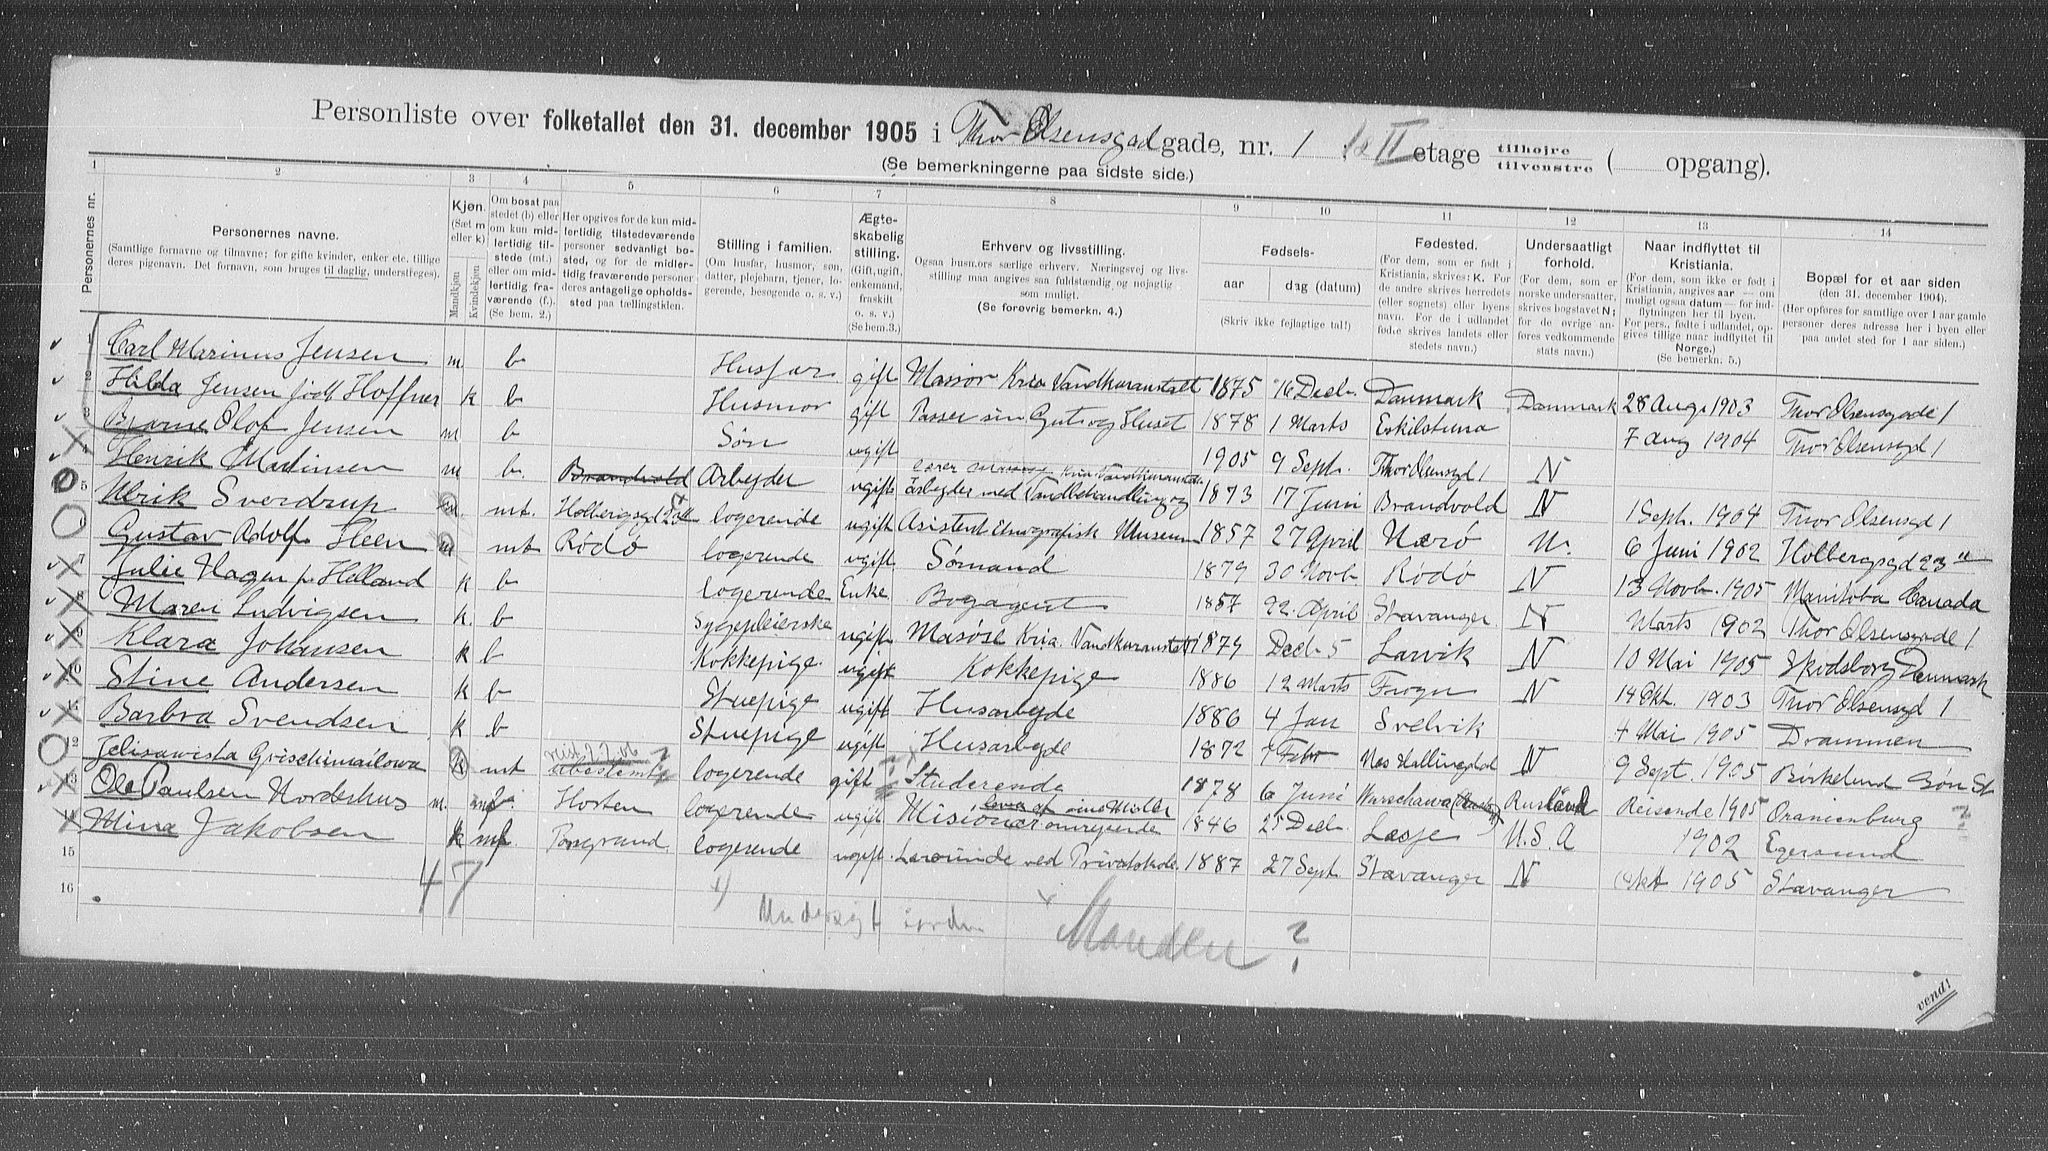 Personliste over folketallet den 31. december 1905 i Thor Olsensgad gade, nr. 1 II etage tilhøjre tilvenstre ( opgang).
(Se bemerkningerne paa sidste side.)
1 2 3 4 5 6 7 8 9 10 11 12 13 14
Personernes nr.
Personernes navne.
(Samtlige fornavne og tilnavne; for gifte kvinder, enker etc. tillige deres pigenavn. Det fornavn, som bruges til daglig, understreges).
Kjøn. (Sæt m eller k)
Mandkjøn Kvindekjøn
Om bosat paa stedet (b) eller om kun midlertidig tilstede (mt.) eller om midlertidig fraværende (f.). (Se bem. 2.)
Her opgives for de kun midlertidig tilstedeværende personer sedvanligt bosted, og for de midlertidig fraværende personer deres antagelige opholdssted paa tællingstiden.
Stilling i familien.
(Om husfar, husmor, søn, datter, plejebarn, tjener, logerende, besøgende o. s. v.)
Ægteskabelig stilling.
(Gift, ugift, enkemand, fraskilt o. s. v.) (Se bem.3.)
Erhverv og livsstilling.
Ogsaa husmors særlige erhverv. Næringsvej og livsstilling maa angives saa fuldstændig og nøjagtig som muligt.
(Se forøvrig bemerkn. 4.)
Fødsels-
aar dag (datum)
(Skriv ikke fejlagtige tal!)
Fødested.
(For dem, som er født i Kristiania, skrives: K. For de andre skrives herredets (eller sognets) eller byens navn. For de i udlandet fødte skrives landets eller stedets navn.)
Undersaatligt forhold.
(For dem, som er norske undersaatter, skrives bogstavet N; for de øvrige anføres vedkommende stats navn.)
Naar indflyttet til Kristiania.
(For dem, som ikke er født i Kristiania, angives aar — om muligt ogsaa datum — for indflytningen her til byen. For pers., fødte i udlandet, opgives tillige naar indflyttet til Norge.) (Se bemerkn. 5.)
Bopæl for et aar siden
(den 31. december 1904).
(Her opføres for samtlige over 1 aar gamle personer deres adresse her i byen eller paa andet sted for 1 aar siden.)
1 Carl Marinus Jensen m b Husfar gift Massør Kria Vandkuranstalt 1875 16 Decb. Danmark Danmark 28 Aug 1903 Thor Olsensgade 1
2 Hilda Jensen født Hoffner k b Husmor gift Passer sin Gut og Huset 1878 1 Marts Eskilstuna 7 Aug 1904 Thor Olsensgd 1
3 Bjarne Olof Jensen m b Søn ugift 1905 9 Sept. Thor Olsensgd 1 N
Henrik Martinsen m b. Brandvold Arbejder ugift Arbejder med Vandbehandling og 1873 17 Juni Brandvold N 1 Sept. 1904 Thor Olsensgd 1
5 Ulrik Sverdrup m mt. Holbergsgd 23 logerende ugift Asistent Etnografisk Museum 1857 27 April Nærø N. 6 Juni 1902 Holbergsgd 23
6 Gustav Adolf Heen m mt Rødø logerende ugift Sømand 1879 30 Novb Rødø N 13 Novb. 1905 Manitoba Canada
7 Julie Hagen f. Helland k b logerende Enke Bogagent 1857 22 April Stavanger N Marts 1902 Thor Olsensgade 1
8 Maren Ludvigsen k b Sygepleierske ugift Masøse Kria Vandkuranstalt 1879 Decb 5 Larvik N 10 Mai 1905 Skodsborg Danmark
9 Klara Johansen k b Kokkepige ugift Kokkepige 1886 12 Marts Frogn N 14 Okt. 1903 Thor Olsensgd 1
10 Stine Andersen k b Stuepige ugift Husarbejde 1886 4 Jan Svelvik 4 Mai 1905 Drammen
11 Barbra Svendsen k b Stuepige ugift Husarbejde 1872 Febr Nes Hallingdal N 9 Sept. 1905 Birkelund
12 Jelisawesta Grischimailowa k mt ubestemt logerende gift ? Studerende 1878 6 Juni Warschawa Rusland Reisende 1905 Oranienburg ?
lever af sine Midler
13 Ole Paulsen Nordshus m. Horten logerende ugift Misionær omreisende 1846 25 Decb. Lesje U.S.A 1902 Egersund
14 Mina Jakobsen k mt Porsgrund logerende ugift. Lærerinde ved Privatskole 1887 27 Sept. Stavanger N Okt 1905 Stavanger
15
16
47
Manden ?
vend!